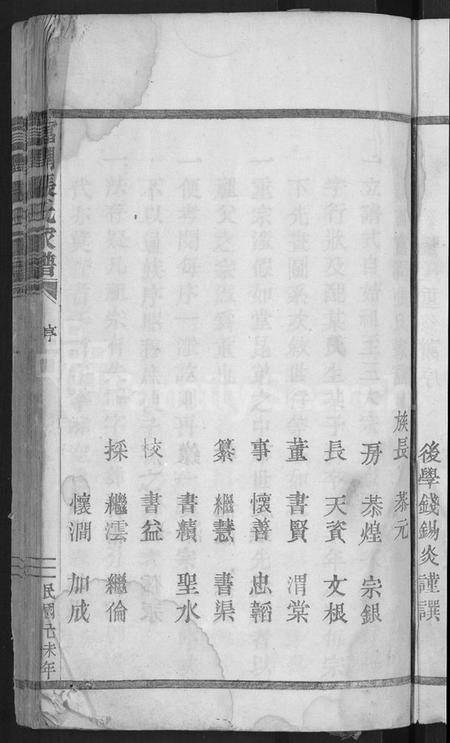 後學錢錫炎謹譔
族長 恭元
房 恭煌 宗銀
長 天資 文根
董 書賢 渭棠
事 懷善 忠韜
纂 繼慧 書渠
書績 聖水
校 書益
採 繼澐 繼倫
懷澗 加成
張氏家譜
序
民國己未年